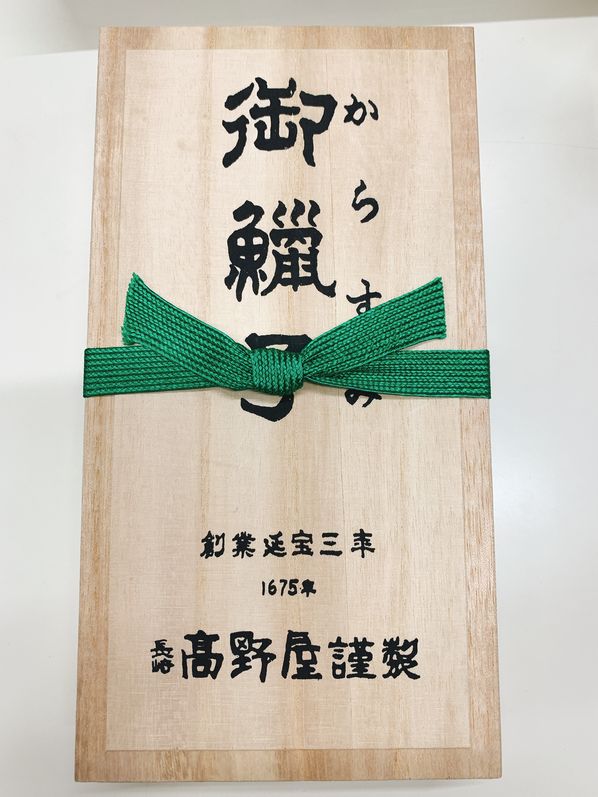 御鱲子
からすみ
創業延宝三年
1675年
長崎
髙野屋謹製